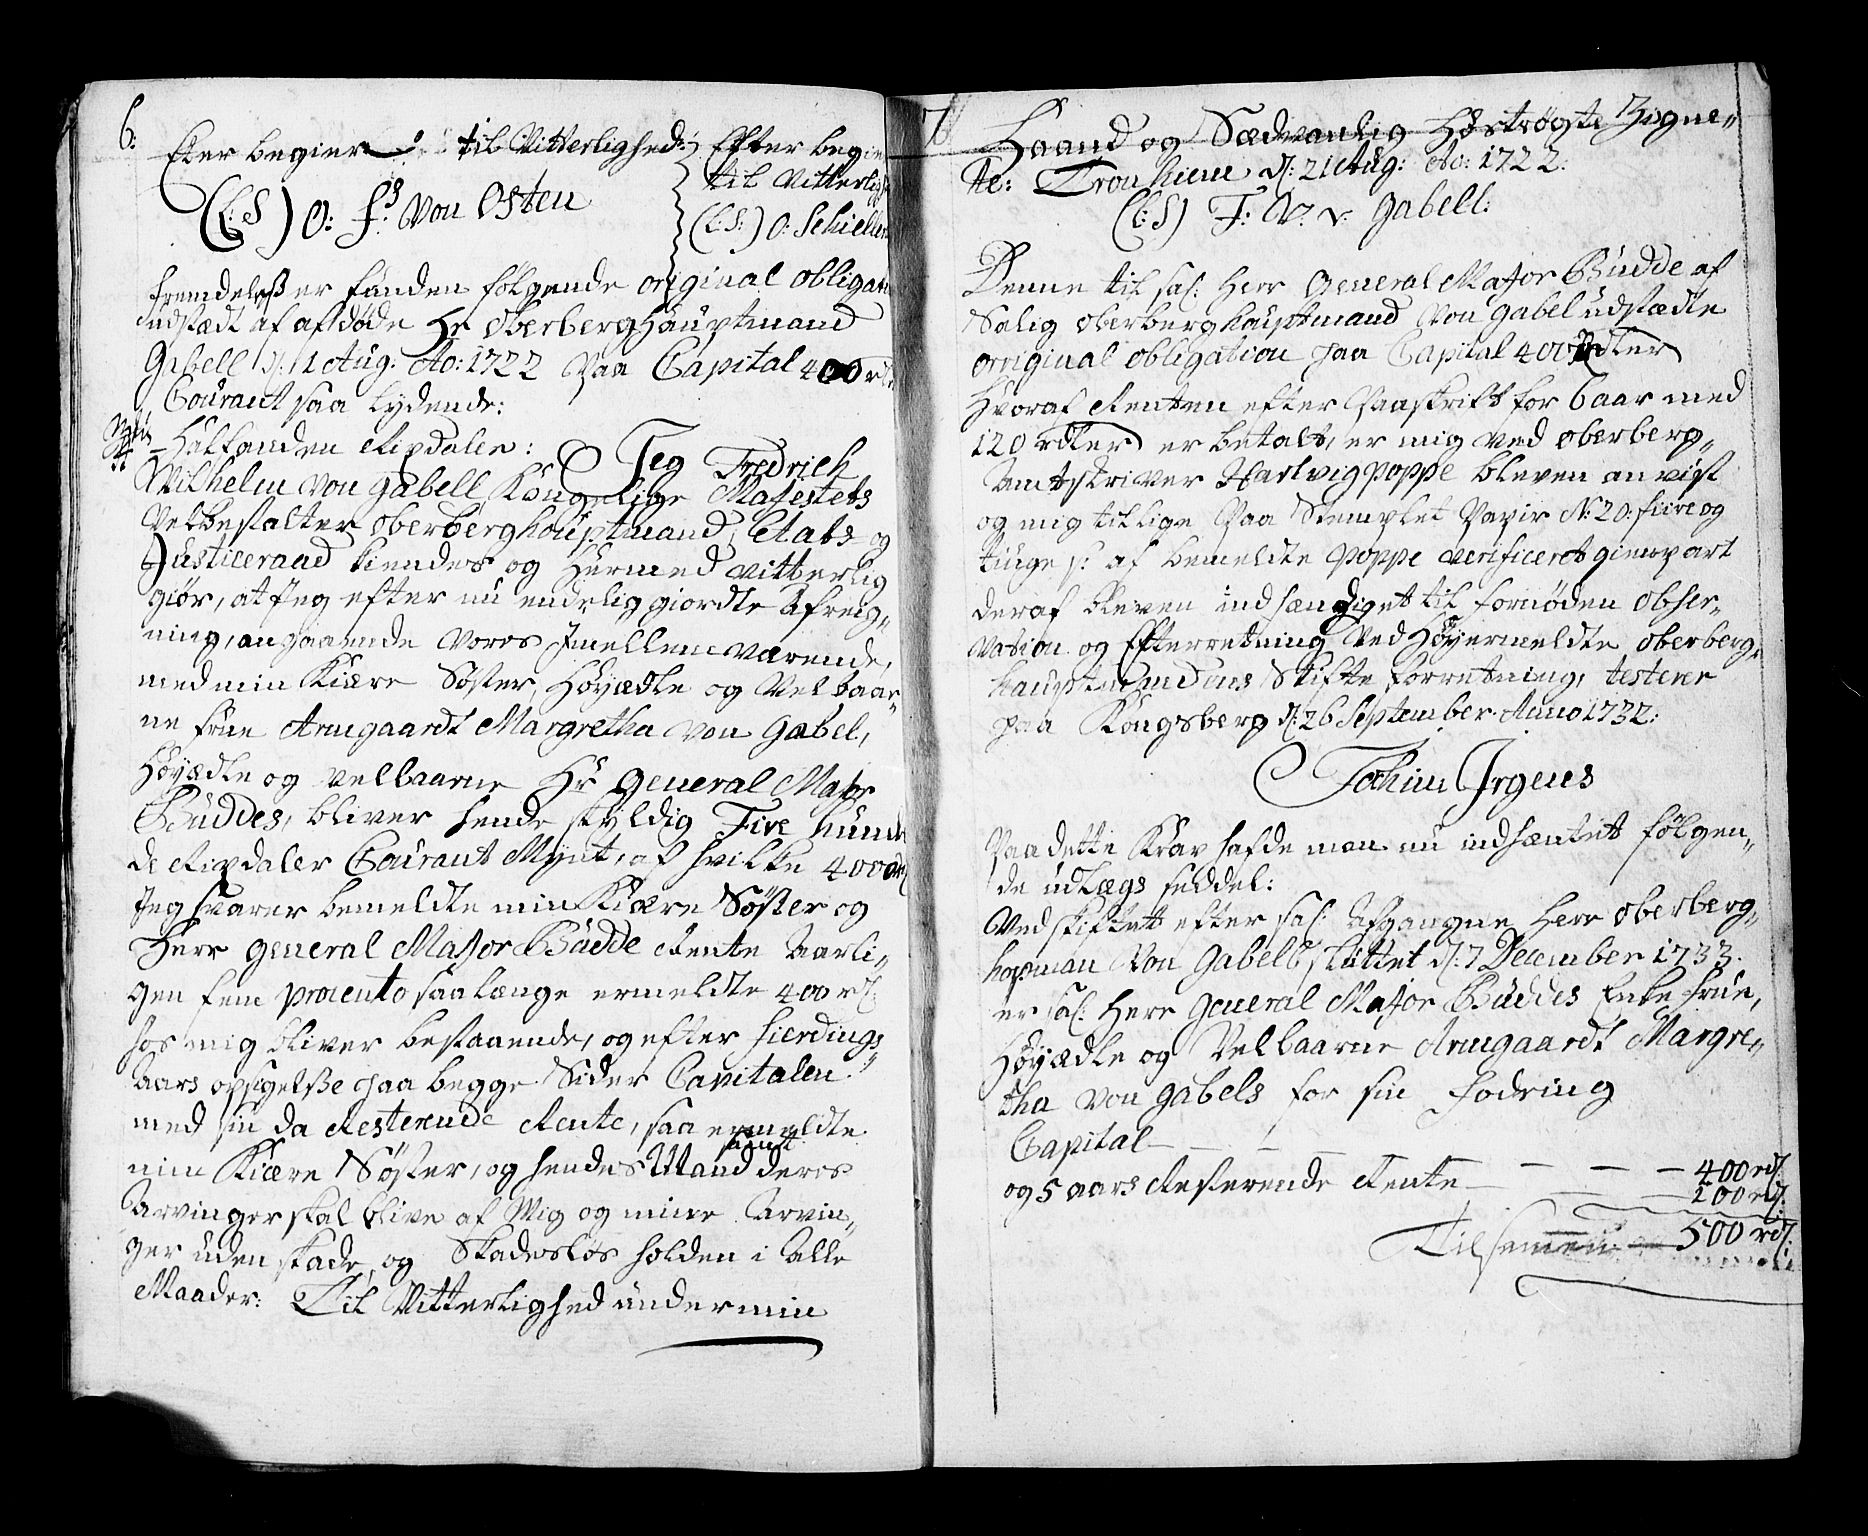 6:
Efter begier til Vitterlighed:
(L:S) O: F: von Osten
Efter begie
til Vitterligh
(L:S:) O: Schieller
Fremdeeleß er funden følgende original obligati
udstædt af afdøde Hr Oberberghauptmand
Gabell d: 21 Aug: Ao: 1722 paa Capital 400 rd
Courant saa lydende:
Halfanden Rixdaler:
Jeg Fredrich
Wilhelm von Gabell Kongelige Majestets
Velbestalter Oberberghauptmand, Etats og
Justiceraad kiendes og hermed vitterlig
giør, at Jeg efter nu endelig giordte Afreig„
ning, angaaende vores Jmellem værende,
med min Kiære Søster, Høyædle og Velbaar„
ne Frue Armgaardt Margretha von Gabel,
Høyædle og velbaarne Hr General Major
Buddes, bliver hende skyldig Fire hund
de Rixdaler Courant Mynt, af hvilke 400 rd
Jeg svarer bemeldte min Kiære Søster og
Herr General Major Budde Rente Aarli„
gen fem procento saalænge ermeldte 400 rd:
hos mig bliver bestaaende, og efter fierdings
Aars opsigelße paa begge Sider Capitalen
med sin da Resterende Rente, saa ermeldte
min Kiære Søster, og hendes Mand samt deres
Arvinger skal blive af Mig og mine Arvin„
ger uden skade, og Skadesløs holden i Alle
Maader: Til Vitterlighed under min
7
Haand og Sædvanlig Hostrøgte Zigne„
te: Tronhiem d: 21 Aug: Ao: 1722:
(L:S) F: W: v: Gabell:
Denne til sal: Herr General Major Budde af
Salig Oberberghauptmand von Gabel udstædte
original obligation paa Capital 400 Rdler
hvoraf Renten efter Paaskrift for 6 aar med
120 rdler er betalt, er mig ved Oberberg„
Amtskriver Hartvig Poppe bleven anvist
og mig tillige paa Stemplet Papir No: 20: fiire og
tiuge s: af bemeldte Poppe verificeret gienpart
deraf bleven indhændiget til fornøden obser„
vation og Efterretning ved Høyermeldte Oberberg„
hauptmandens Skifte forretning, testerer
paa Kongsberg d: 26 September Anno 1732:
Jochim Jrgens
Paa dette Krav hafde man nu indhæntet følgen„
de udlægs seddel:
Ved skiftet efter sal: Afgangne Herr Oberberg„
hopman von Gabell sluttet d: 7 December 1733.
er sal: Herr General Major Buddes Enke Frue,
Høyædle og Velbaarne Armgaardt Margre„
tha von Gabels for sin fodring
Capital — — — — — — 400 rd:
og 5 aars Resterende Rente — — — 100 rd:
Tilsamen — 500 rd: